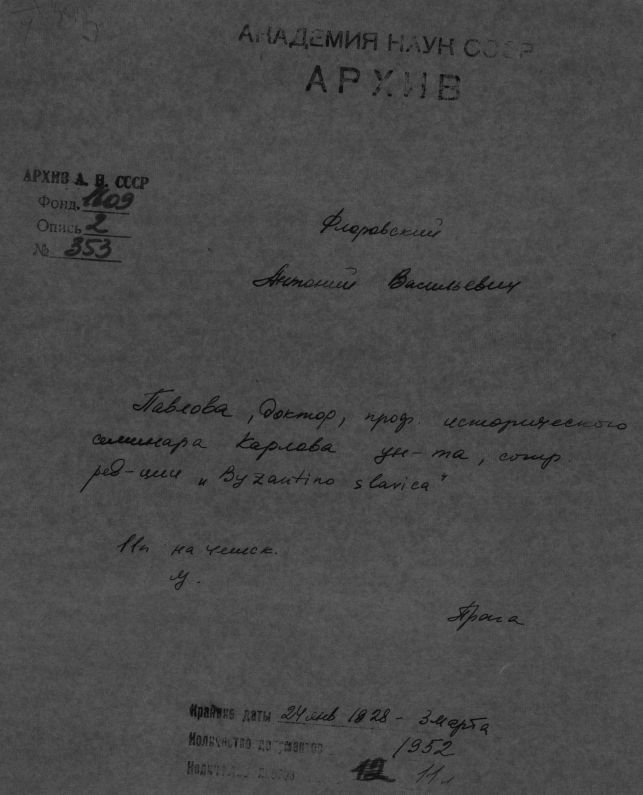 АКАДЕМИЯ НАУК СССР
АРХИВ
АРХИВ А. Н. СССР
Фонд. 1609
Опись 2
№ 353
Флоровский
Антоний Васильевич
Павлова, доктор, проф. исторического
семинара Карлова ун-та, сотр.
ред-ции „Byzantino slavica"
11п на чешск.
Прага
Крайние даты 24 янв 1928 - 3 марта
1952
Количество документов
Количество листов 12 11 л